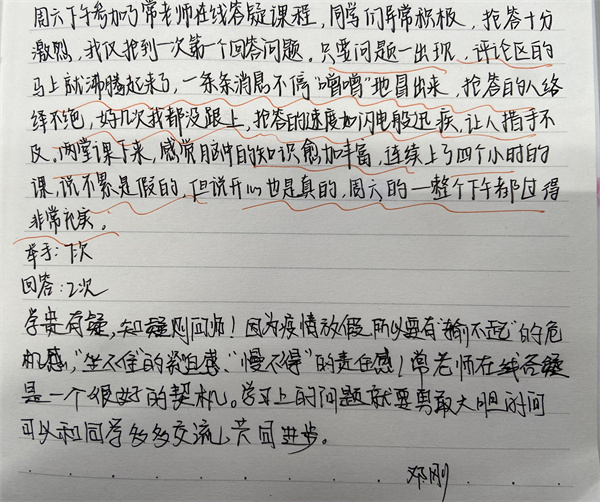 周六下午参加了常老师在线答疑课程，同学们异常积极，抢答十分
激烈，我仅抢到一次第一个回答问题。只要问题一出现，评论区的
马上就沸腾起来了，一条条消息不停“噌噌”地冒出来，抢答的人络
绎不绝，好几次我都没跟上，抢答的速度如闪电般迅疾，让人措手不
及。两堂课下来，感觉脑中的知识愈加丰富，连续上了四个小时的
课，说不累是假的，但说开心也是真的，周六的一整个下午都过得
非常充实。
举手：下次
回答：2次
学贵有疑，知疑则问师！因为疫情放假，所以要有“输不起”的危
机感，“坐不住”的紧迫感、“慢不得”的责任感！常老师在线答疑
是一个很好的契机。学习上的问题就要勇敢大胆的问
可以和同学多多交流，共同进步。
邓刚